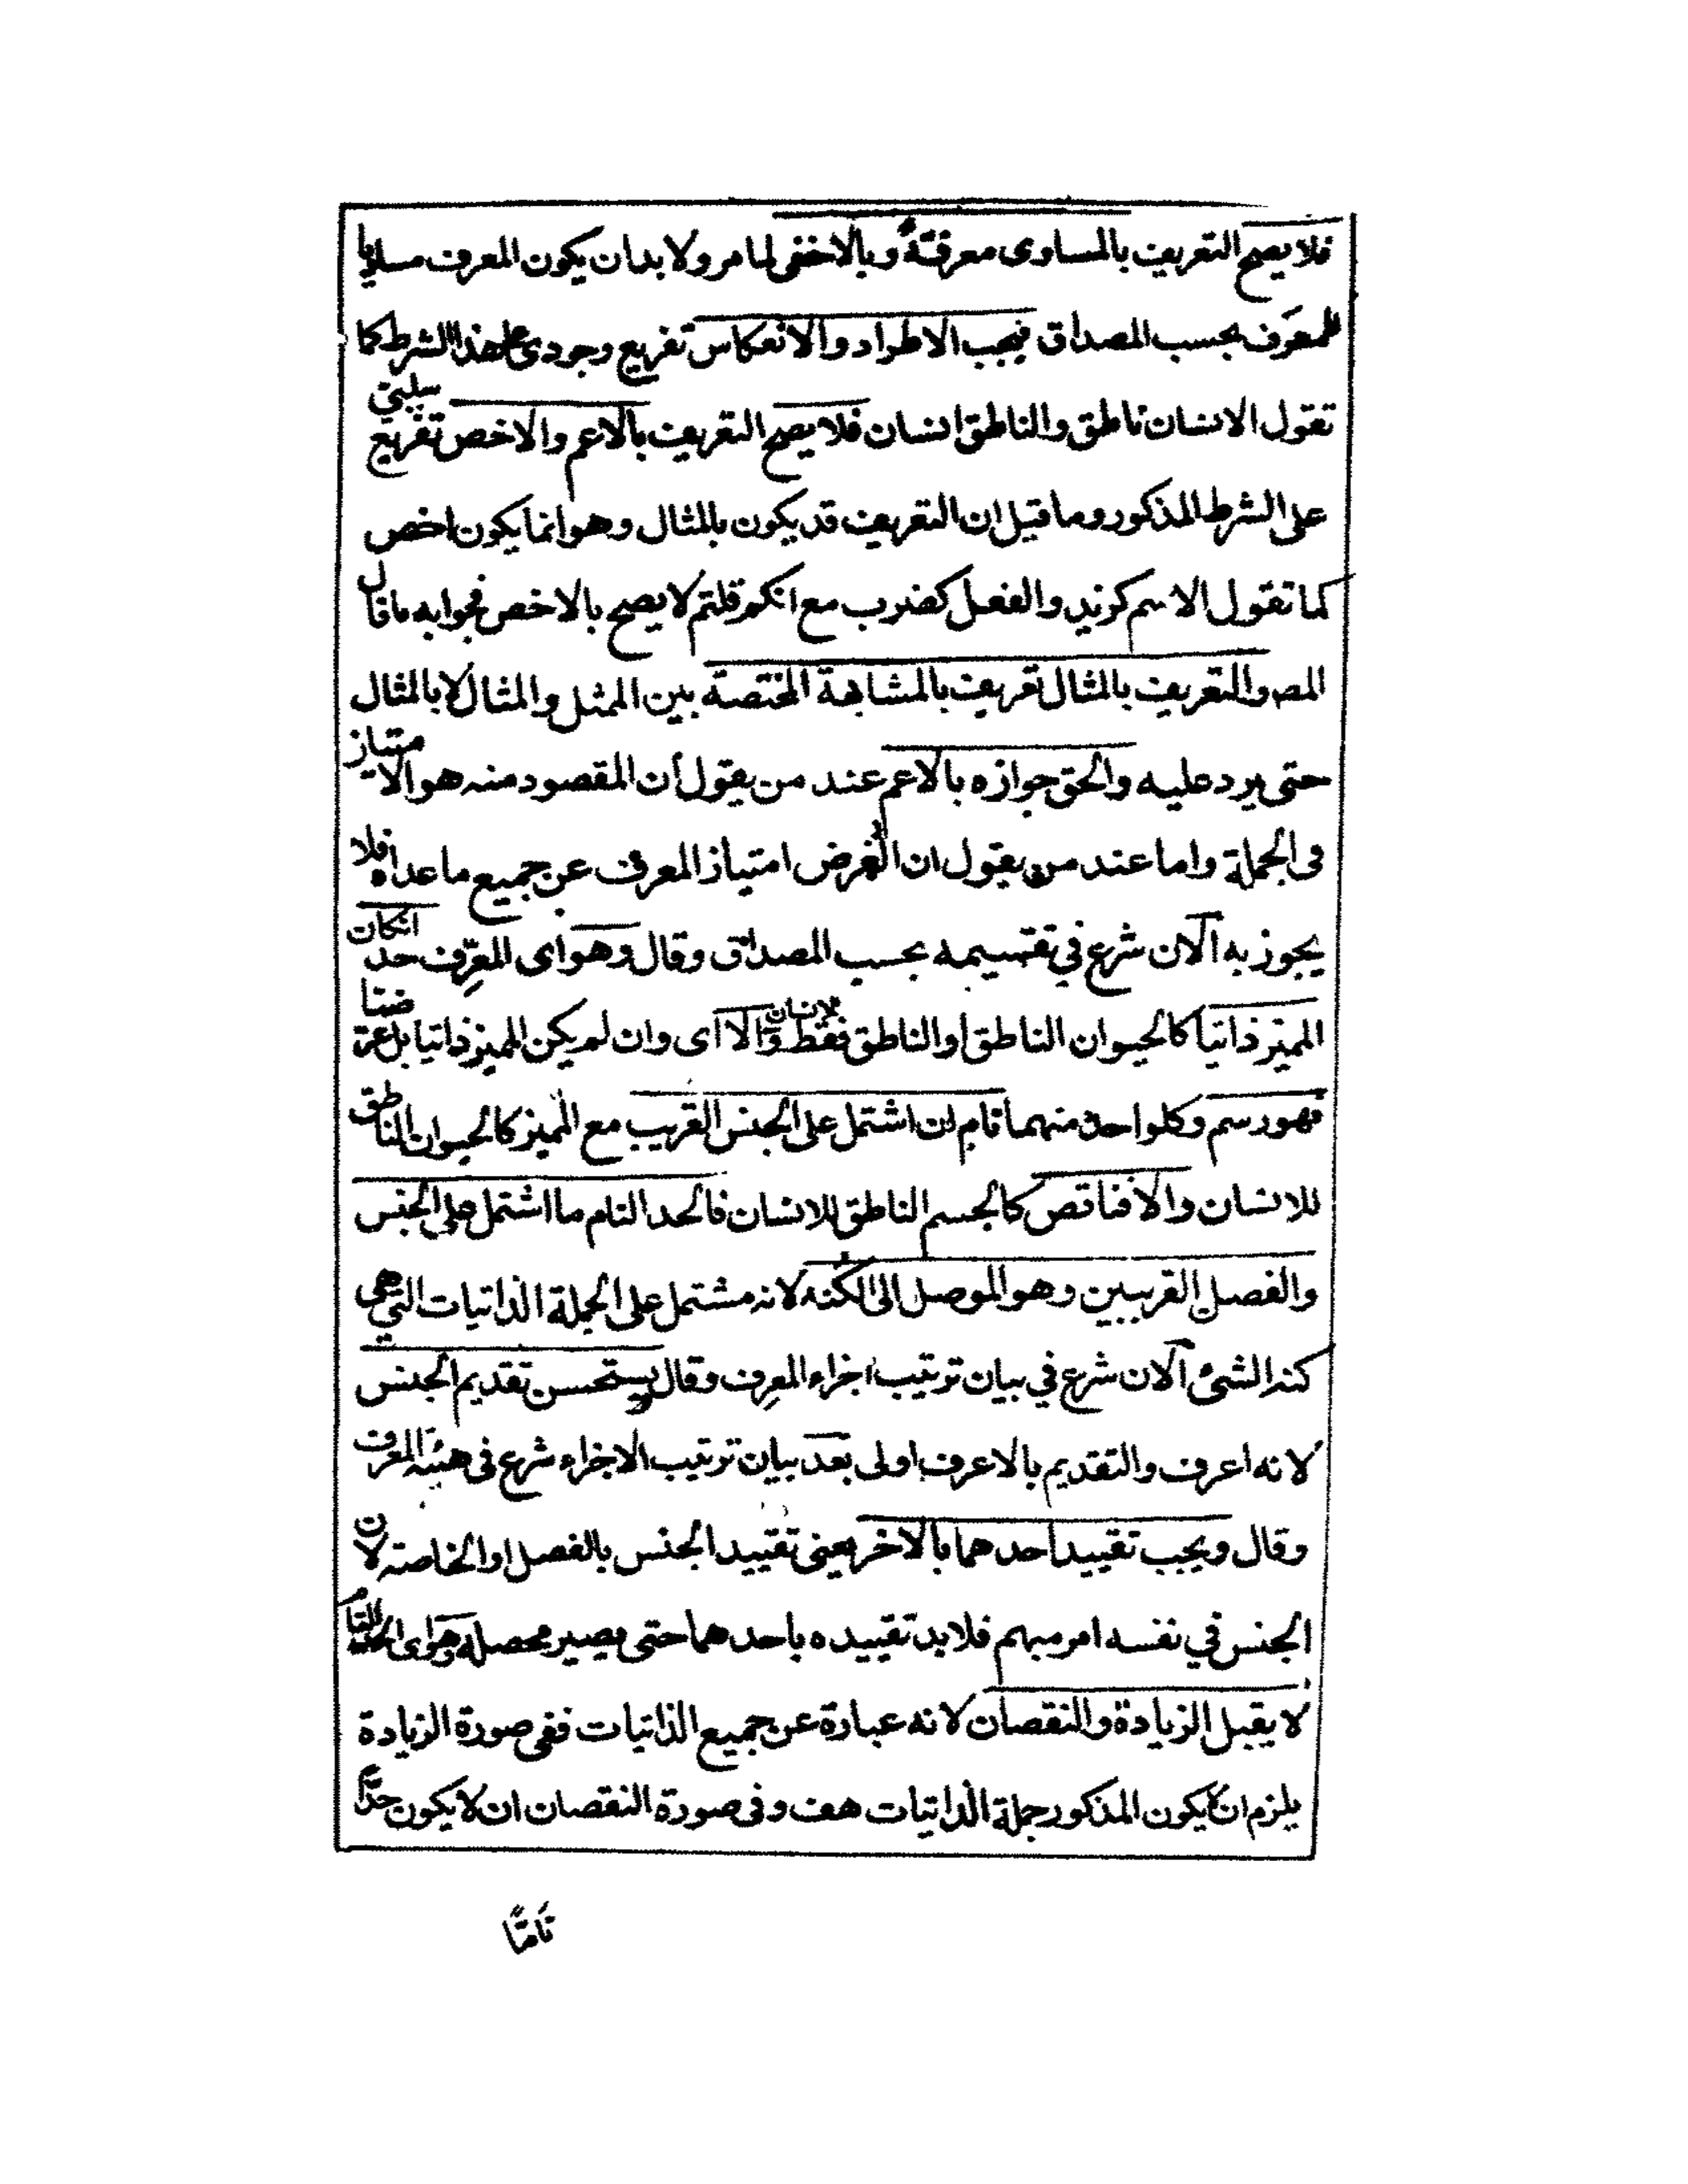 فلا يصح التعريف بالمساوى معرفة وبالاخفى لما مر ولا بد ان يكون المعرف مساويا
للمعرَف بحسب المصداق فيجب الاطراد والانعكاس تفريع وجودى على هذا الشرط كما
تقول الانسان ناطق والناطق انسان فلا يصح التعريف بالاعم والاخص تفريع سلبى
على الشرط المذكور وما قيل ان التعريف قد يكون بالمثال وهو انما يكون اخص
كما تقول الاسم كزيد والفعل كضرب مع انكم قلتم لا يصح بالاخص فجوابه ما قال
المص والتعريف بالمثال تعريف بالمشابهة المختصة بين الممثل والمثال لا بالمثال
حتى يرد عليه والحق جوازه بالاعم عند من يقول ان المقصود منه هو الامتياز
فى الجملة واما عند من يقول ان الغرض امتياز المعرف عن جميع ما عداه فلا
يجوز به الآن شرع في تقسيمه بحسب المصداق وقال وهو اى المعرِّف حد انكان
المميز ذاتيا كالحيوان الناطق او الناطق فقط للانسان والا اى وان لم يكن المميز ذاتيا بل عرضيا
فهو رسم وكل واحد منهما تام ان اشتمل على الجنس القريب مع المميز كالحيوان الناطق
للانسان والا فناقص كالجسم الناطق للانسان فالحد التام ما اشتمل على الجنس
والفصل القريبين وهو الموصل الى الكنه لانه مشتمل على الجملة الذاتيات التي هى
كنه الشئ الآن شرع في بيان ترتيب اجزاء المعرِف وقال يستحسن تقديم الجنس
لانه اعرف والتقديم بالاعرف اولى بعد بيان ترتيب الاجزاء شرع فى هيئة المعرف
وقال ويجب تقييد احدهما بالاخر يعنى تقييد الجنس بالفصل او الخاصة لان
الجنس في نفسه امر مبهم فلا بد تقييده باحدهما حتى يصير محصله وهو اى الحد التام
لا يقبل الزيادة والنقصان لانه عبارة عن جميع الذاتيات ففى صورة الزيادة
يلزم ان لا يكون المذكور جملة الذاتيات هف وفى صورة النقصان ان لا يكون حدًّا
تَامًّا